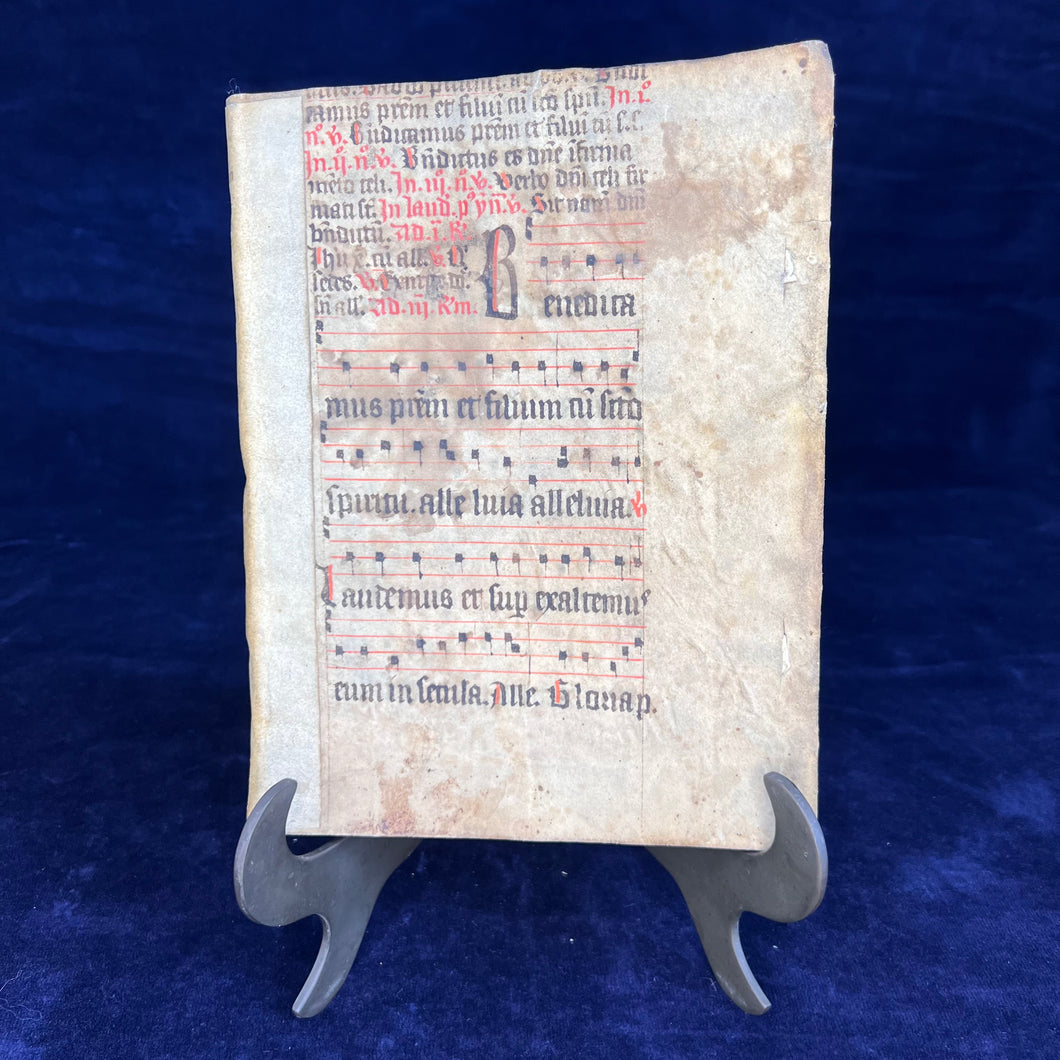 tamus prēm et filiū cū sc̄o spū. In .i.
n°. v̄. Bn̄dicamus prēm et filiū cū s. s.
In .ij. n°. v̄. Bn̄dictus es dn̄e ī firma
mēto celi. In .iij. n°. v̄. Verbo dn̄i celi fir
mati st̄. In laud. p° yn̄. v̄. Sit nomē dn̄i
bn̄dictū. Ad .i. R̄
Ihu x̄. cū all. v̄. Q
sedes. v̄.
sn̄ all. Ad .iij. R̄m. B enedica
mus prēm et filium cū scīo
spiritu. alle luia alleluia. v̄
Laudemus et sup exaltemus
eum in secula. Alle. Gloria p.